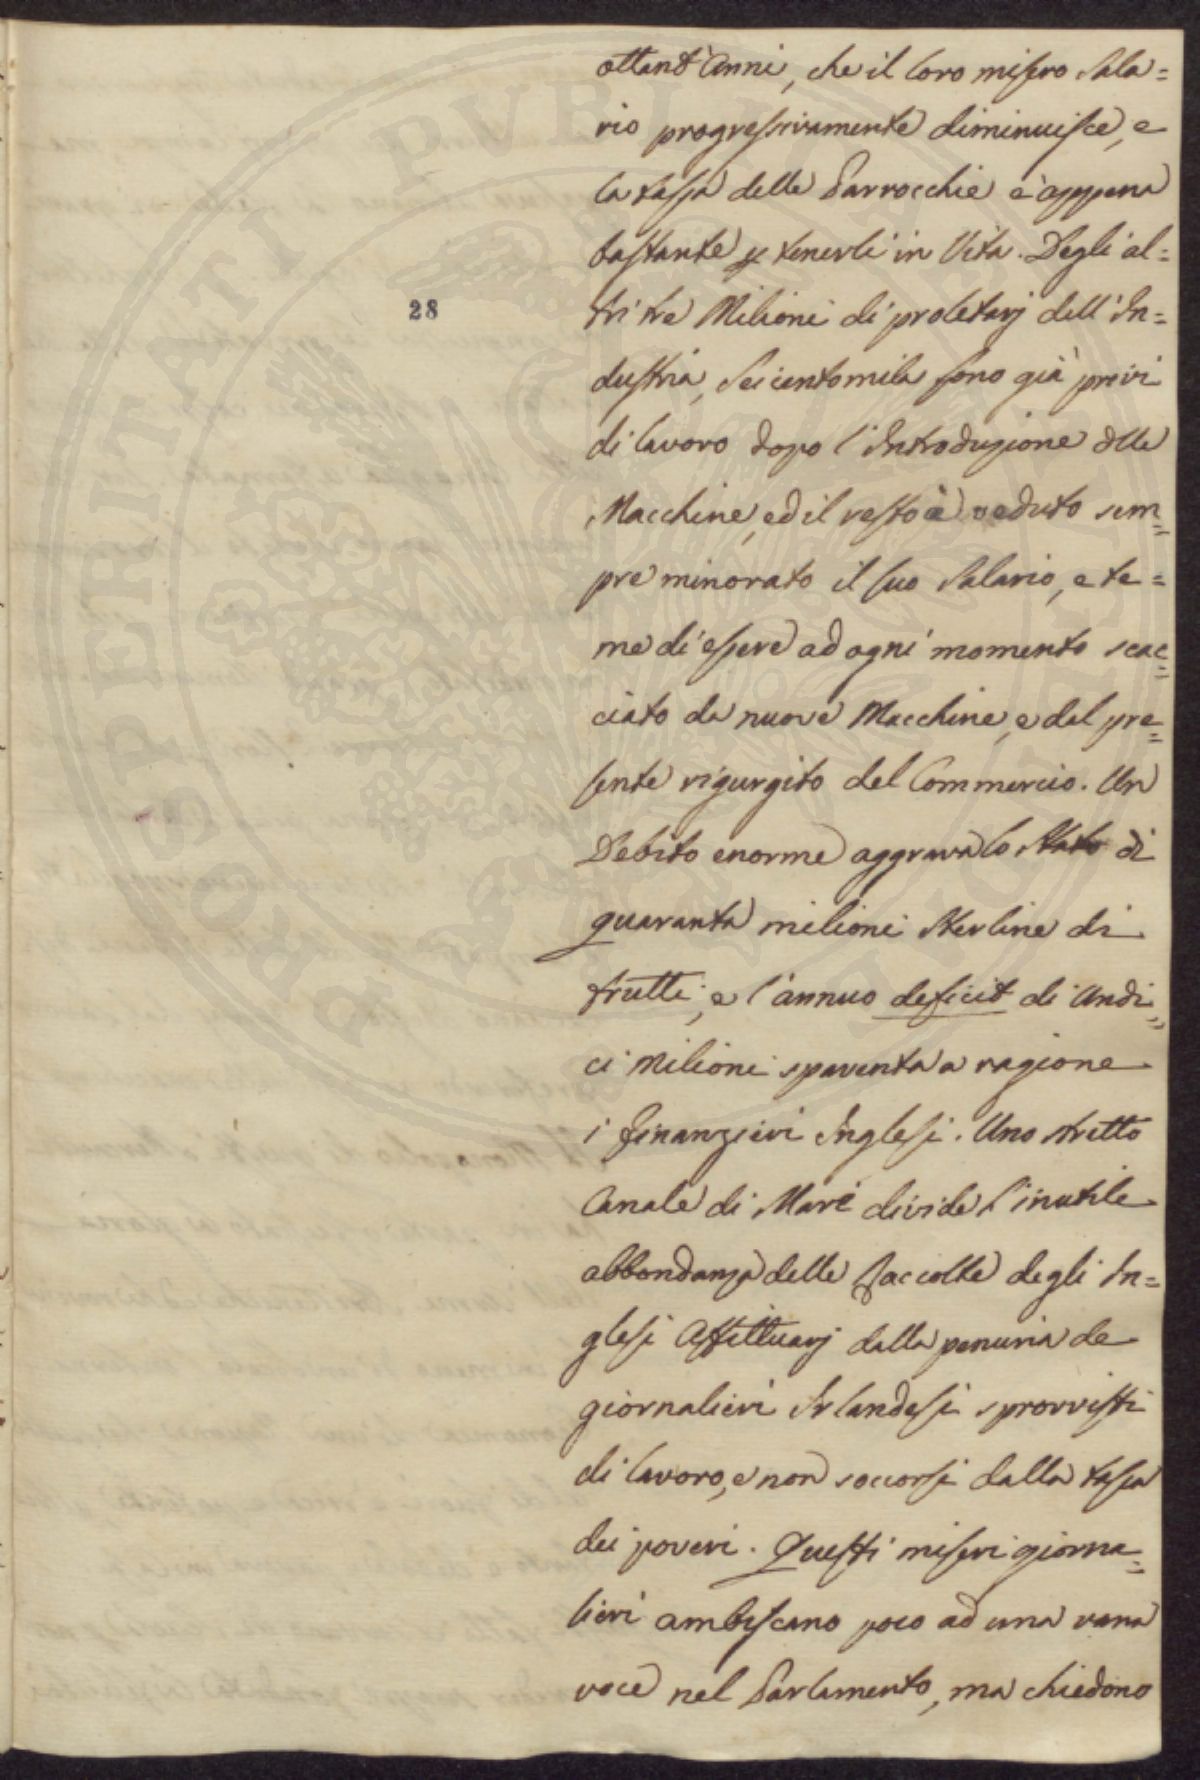 ottant'Anni, che il loro misero Sala=
rio progressivamente diminuisce, e
la tassa delle Parrocchie è appena
bastante p tenerli in Vita. Degli al=
tri tre Milioni di proletarj dell'In=
28
dustria, Seicentomila sono già privi
di lavoro dopo l'Introduzione dlle
Macchine, ed il resto à veduto sem=
pre minorato il suo Salario, e te=
me di essere ad ogni momento scac=
ciato da nuove Macchine, e dal pre=
sente rigurgito del Commercio. Un
Debito enorme aggrava lo Stato di
quaranta milioni Sterline di
frutti, e l'annuo deficit di Undi=
ci Milioni spaventa a ragione
i Finanzieri Inglesi. Uno stretto
Canale di Mare divide l'inutile
abbondanza delle Raccolte degli In=
glesi Affittuarj dalla penuria de
giornalieri Irlandesi sprovvisti
di lavoro, e non soccorsi dalla tassa
dei poveri. Questi miseri giorna=
lieri ambiscano poco ad una vana
voce nel Parlamento, ma chiedono
PROSPERITATI PUBLICAE AUGENDAE